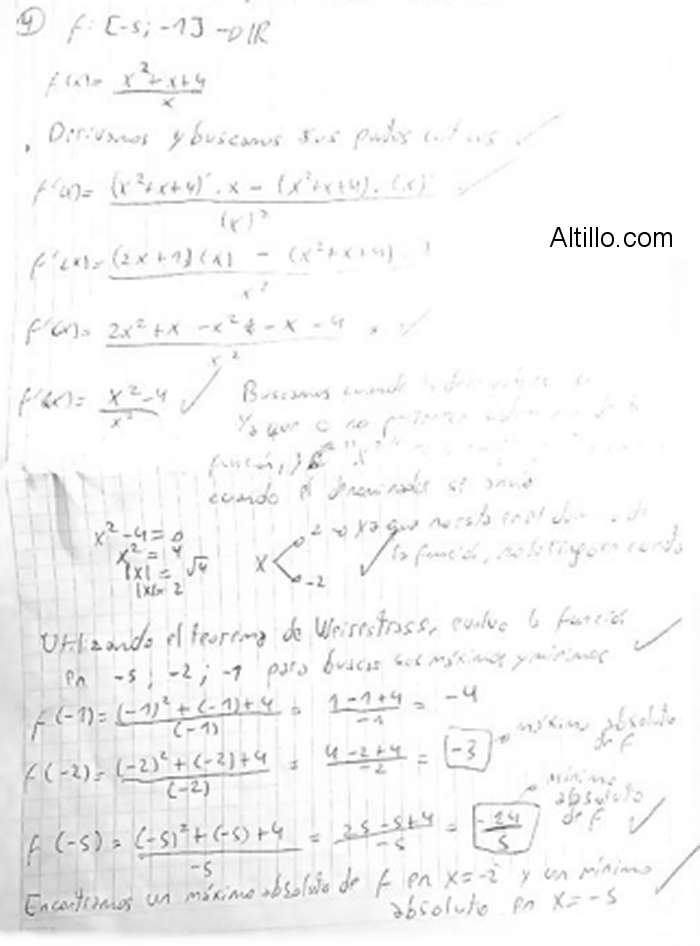 4) f: [-5; -1] → R
f(x) = (x² + x + 4) / x
. Derivamos y buscamos sus puntos
f'(x) = ((x²+x+4)' . x - (x²+x+4) . (x)') / (x)²
Altillo.com
f'(x) = ((2x+1)(x) - (x²+x+4)) / x²
f'(x) = (2x² + x - x² - x - 4) / x²
f'(x) = (x² - 4) / x²
Buscamos cuando
Ya que 0 no
función, "x²"
cuando el denominador se
x² - 4 = 0
x² = 4
|x| = √4
|x| = 2
x 2 → ya que no esta en el
la función, no lo tengo en cuenta
-2
Utilizando el teorema de Weirestrass, evaluo la función
en -5; -2; -1 para buscar sus máximos y mínimos
f(-1) = ((-1)² + (-1) + 4) / (-1) = (1 - 1 + 4) / -1 = -4
f(-2) = ((-2)² + (-2) + 4) / (-2) = (4 - 2 + 4) / -2 = -3 → máximo absoluto de f
f(-5) = ((-5)² + (-5) + 4) / -5 = (25 - 5 + 4) / -5 = -24/5 → mínimo absoluto de f
Encontramos un máximo absoluto de f en x = -2 y un mínimo
absoluto en x = -5